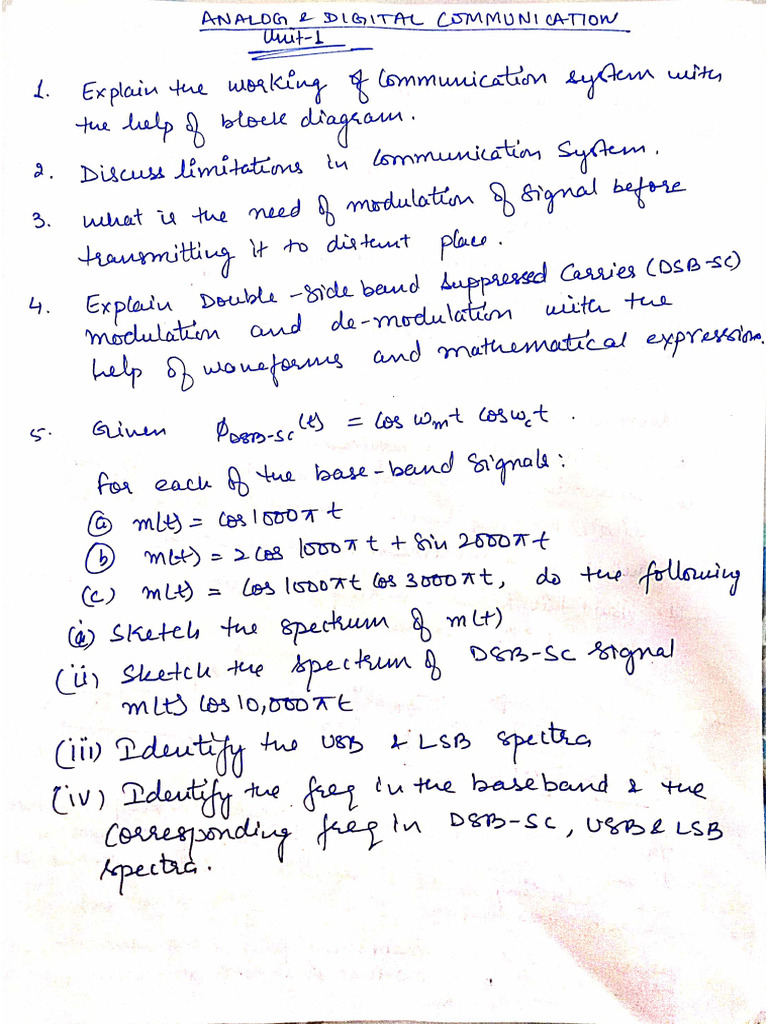 ANALOG & DIGITAL COMMUNICATION
Unit-1
1. Explain the working of Communication system with
the help of block diagram.
2. Discuss limitations in Communication System.
3. What is the need of modulation of signal before
transmitting it to distent place.
4. Explain Double-side band Suppressed Carries (DSB-SC)
modulation and de-modulation with the
help of waveforms and mathematical expressions.
5. Given ϕ_DSB-SC(t) = cos ω_m t cos ω_c t .
for each of the base-band signals:
(a) m(t) = cos 1000πt
(b) m(t) = 2 cos 1000πt + sin 2000πt
(c) m(t) = cos 1000πt cos 3000πt, do the following
(i) Sketch the spectrum of m(t)
(ii) Sketch the spectrum of DSB-SC signal
m(t) cos 10,000πt
(iii) Identify the USB & LSB spectra
(iv) Identify the freq in the baseband & the
corresponding freq in DSB-SC, USB & LSB
spectra.